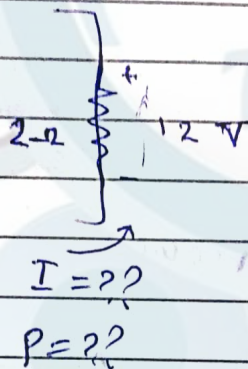 +
2Ω 12 V
-
I = ??
P = ??